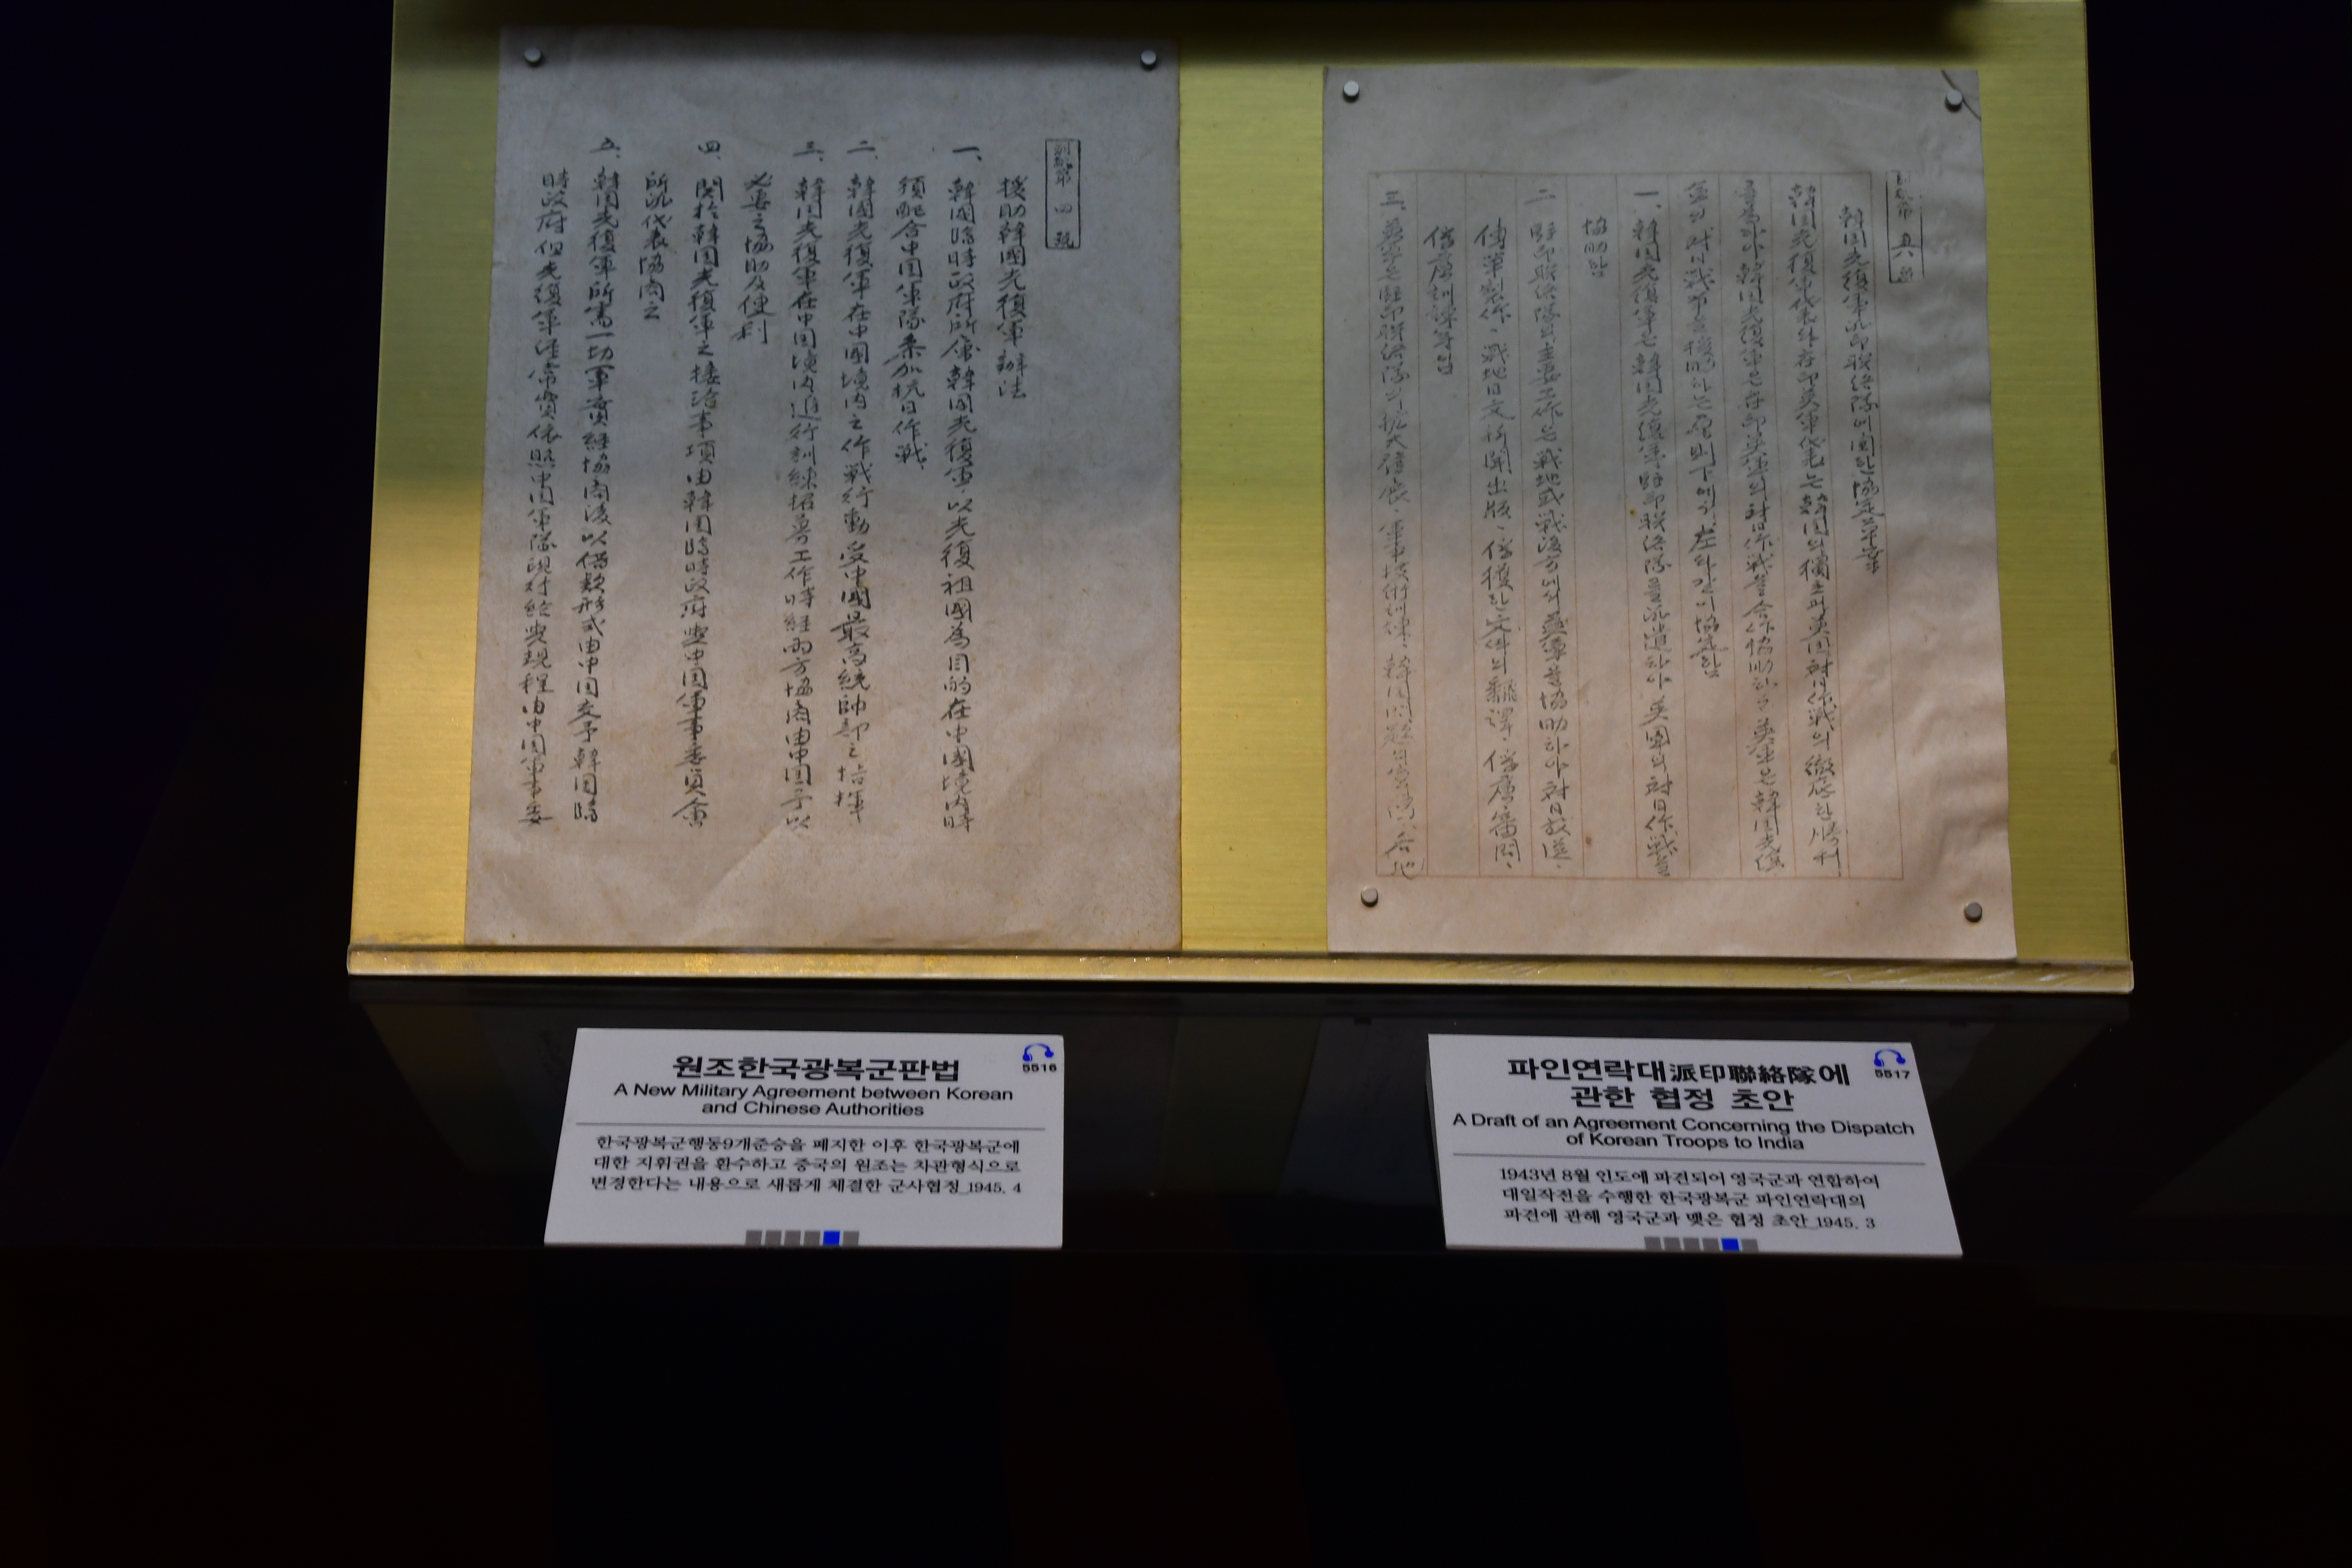 援助韓國光復軍辦法
一、韓國臨時政府所屬韓國光復軍以光復祖國為目的在中國境内時
須配合中国軍隊参加抗日作戰
二、韓國光復軍在中國境内之作戰行動受中國最高統帥部之指揮
三、韓国光復軍在中国境内進行訓練招募工作時経両方協商由中国予以
必要之協助及便利
四、関於韓国光復軍之接洽事項由韓国臨時政府與中国軍事委員会
所派代表協商之
五、韓国光復軍所需一切軍費経協商後以借款形式由中国交予韓国臨
時政府但光復軍経常費依照中国軍隊現 由中国軍事委
韓国光復軍 聯絡隊에関한協定草案
韓国光復軍代表 英軍代表는韓国의獨立과英国対日作戰의徹底한勝利
韓国光復軍은 英軍의対日作戰을合作協助하 韓国光復
軍의対日戰争을援助하는原則下에서左와같이協定함
一、韓国光復軍은韓国光復軍駐印聯絡隊를派遣하야英国의対日作戰을
協助함
二、駐印聯絡隊의主要工作은戰地或戰後方에서英軍을協助하야対日放送、
傳單製作、戰地日文新聞出版、 獲한文件의飜譯、俘虜審問、
俘虜訓練等임
三、英軍은駐印聯絡隊의擴大發展、軍事技術訓練、
원조한국광복군판법
5516
A New Military Agreement between Korean
and Chinese Authorities
한국광복군행동9개준승을 폐지한 이후 한국광복군에
대한 지휘권을 환수하고 중국의 원조는 차관형식으로
변경한다는 내용으로 새롭게 체결한 군사협정_1945. 4
파인연락대派印聯絡隊에
관한 협정 초안
5517
A Draft of an Agreement Concerning the Dispatch
of Korean Troops to India
1943년 8월 인도에 파견되어 영국군과 연합하여
대일작전을 수행한 한국광복군 파인연락대의
파견에 관해 영국군과 맺은 협정 초안_1945. 3